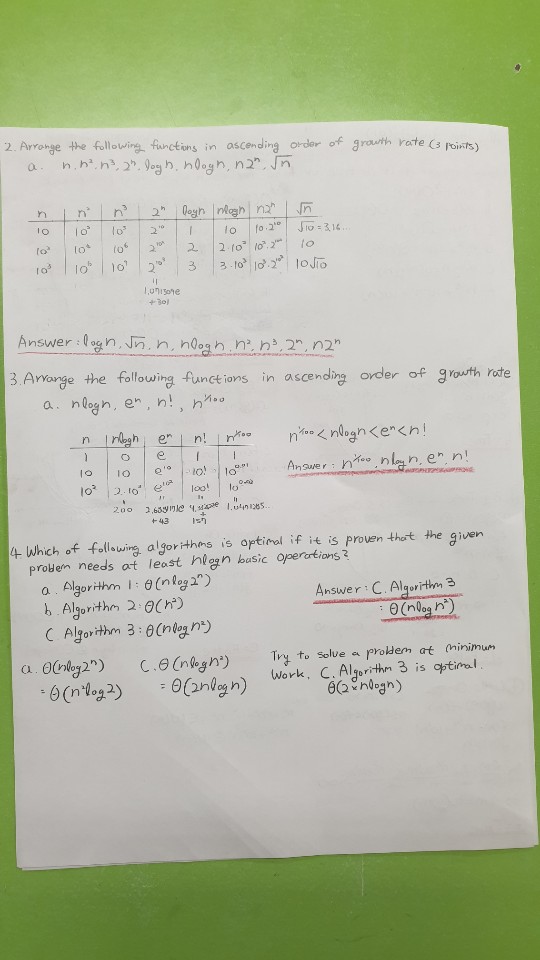 2. Arrange the following functions in ascending order of growth rate (3 points)
a. n, n², n³, 2ⁿ, logn, nlogn, n2ⁿ, √n
n n² n³ 2ⁿ logn nlogn n2ⁿ √n
10 10² 10³ 2¹⁰ 1 10 10·2¹⁰ √10 = 3.16...
10² 10⁴ 10⁶ 2^10² 2 2·10² 10²·2^10² 10
10³ 10⁶ 10⁹ 2^10³ 3 3·10³ 10³·2^10³ 10√10
"
1.071509e
+301
Answer : logn, √n, n, nlogn, n², n³, 2ⁿ, n2ⁿ
3. Arrange the following functions in ascending order of growth rate
a. nlogn, eⁿ, n!, n^1/100
n nlogn eⁿ n! n^1/100
1 0 e 1 1
10 10 e¹⁰ 10! 10^0.01
10² 2·10² e^10² 100! 10^0.02
200
+43
157
n^1/100 < nlogn < eⁿ < n!
Answer : n^1/100, nlogn, eⁿ, n!
4. Which of following algorithms is optimal if it is proven that the given
problem needs at least nlogn basic operations?
a. Algorithm 1 : θ(nlog2ⁿ)
b. Algorithm 2 : θ(n²)
C Algorithm 3 : θ(nlogn²)
Answer : C. Algorithm 3
: θ(nlogn²)
a. θ(nlog2ⁿ)
= θ(n²log2)
C. θ(nlogn²)
= θ(2nlogn)
Try to solve a problem at minimum
work, C. Algorithm 3 is optimal.
θ(2×nlogn)